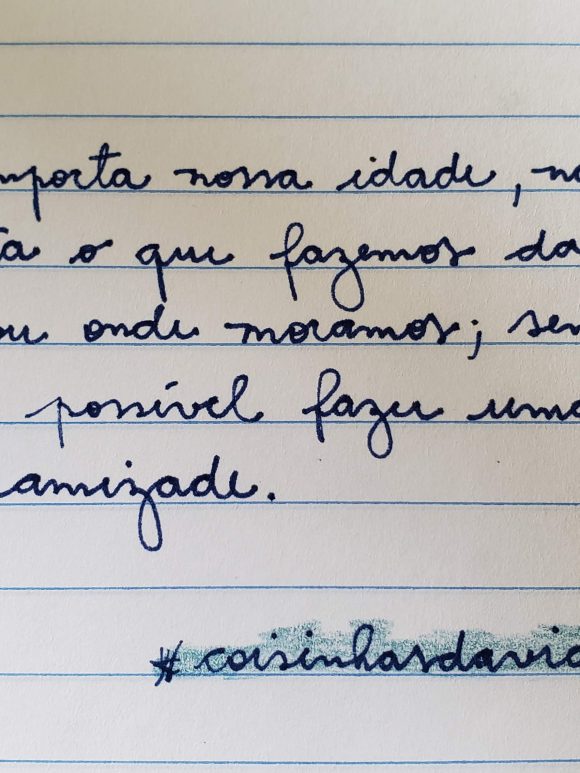 mporta nossa idade, n
ta o que fazemos da
ou onde moramos; sem
possível fazer uma
amizade.
#coisinhasdavid